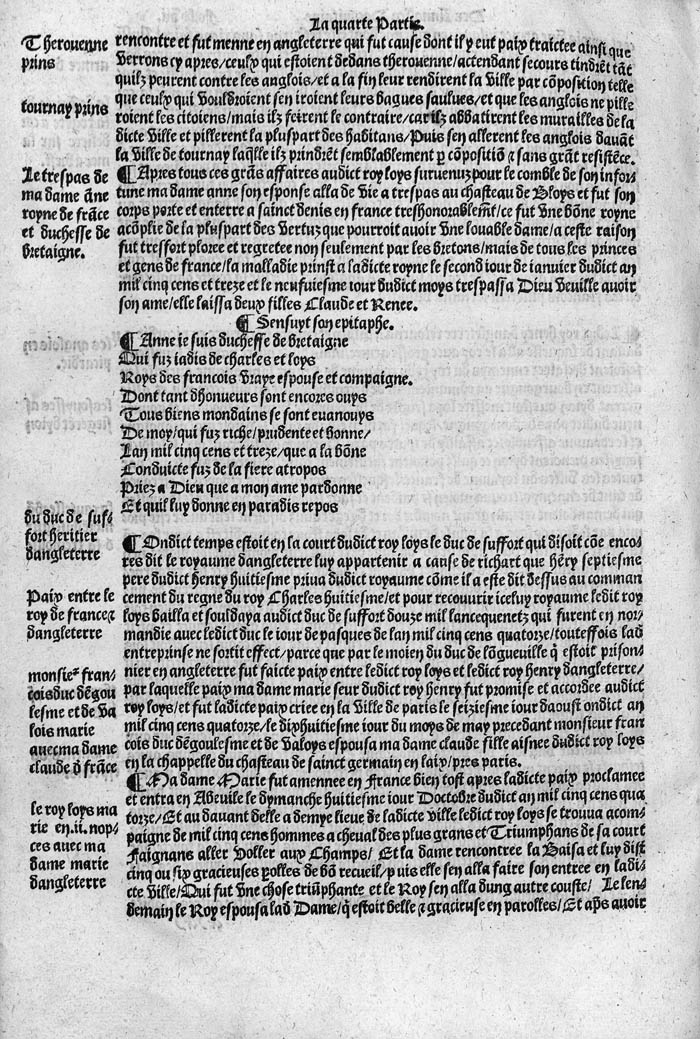 La quarte Partie.
Therouenne
prins
tournay prins
Le trespas de
ma dame āne
royne de frāce
et duchesse de
bretaigne.
rencontre et fut menne en angleterre qui fut cause dont il y eut paix traictee ainsi que
verrons cy apres/ceulx qui estoient dedans therouenne/actendant secours tindrēt tāt
quilz peurent contre les anglois/et a la fin leur rendirent la ville par cōposition telle
que ceulx qui vouldroient sen iroient leurs bagues saulues/et que les anglois ne pille
roient les citoiens/mais ilz feirent le contraire/car ilz abbatirent les murailles de la
dicte ville et pillerent la pluspart des habitans/Puis sen allerent les anglois deuāt
la ville de tournay laq̄lle ilz prindrēt semblablement ꝑ cōpositiō ⁊ sans grāt resistēce.
¶Apres tous ces grās affaires audict roy loys suruenuz pour le comble de son infor⸗
tune ma dame anne son esponse alla de vie a trespas au chasteau de Bloys et fut son
corps porte et enterre a sainct denis en france treshonorablemēt/ce fut vne bōne royne
acōplie de la pluspart des vertuz que pourroit auoir vne louable dame/a ceste raison
fut tresfort ploree et regretee non seulement par les bretons/mais de tous les princes
et gens de france/la malladie prinst a ladicte royne le second iour de ianuier dudict an
mil cinq cens et treze et le neufuiesme iour dudict moys trespassa Dieu veuille auoir
son ame/elle laissa deux filles Claude et Renee.
¶ Sensuyt son epitaphe.
¶Anne ie suis duchesse de bretaigne
Qui fuz iadis de charles et loys
Roys des francois vraye espouse et compaigne.
Dont tant dhonneurs sont encores ouys
Tous biens mondains se sont euanouys
De moy/qui fuz riche/prudente et bonne/
Lan mil cinq cens et treze/que a la bōne
Conduicte fuz de la fiere atropos
Priez a Dieu que a mon ame pardonne
Et quil luy donne en paradis repos
du duc de suf⸗
fort heritier
dangleterre
Paix entre le
roy de france⁊
dangleterre
monsieᷣ fran⸗
cois duc dēgou
lesme et de va
lois marie
auec ma dame
claude d̄ frāce
¶Ondict temps estoit en la court dudict roy loys le duc de suffort qui disoit cōe enco⸗
res dit le royaume dangleterre luy appartenir a cause de richart que hēry septiesme
pere dudict henry huitiesme priua dudict royaume cōme il a este dit dessus au comman
cement du regne du roy Charles huitiesme/et pour recouurir iceluy royaume ledit roy
loys bailla et souldaya audict duc de suffort douze mil lancequenetz qui furent en nor⸗
mandie auec ledict duc le iour de pasques de lan mil cinq cens quatorze/touteffois lad
entreprinse ne sortit effect/parce que par le moien du duc de lōgueuille q̄ estoit prison⸗
nier en angleterre fut faicte paix entre ledict roy loys et ledict roy henry dangleterre/
par laquelle paix ma dame marie seur dudict roy henry fut promise et accordee audict
roy loys/et fut ladicte paix criee en la ville de paris le seiziesme iour daoust ondict an
mil cinq cens quatorze/le dixhuitiesme iour du moys de may precedant monsieur fran
cois duc dēgoulesme et de valoys espousa ma dame claude fille aisnee dudict roy loys
en la chappelle du chasteau de sainct germain en laix/pres paris.
le roy loys ma
rie en.ii. nop⸗
ces auec ma
dame marie
dangleterre
¶Ma dame Marie fut amennee en France bien tost apres ladicte paix proclamee
et entra en Abeuile le dymanche huitiesme iour Doctobre dudict an mil cinq cens qua
torze/Et au dauant delle a demye lieue de ladicte ville ledict roy loys se trouua acom⸗
paigne de mil cinq cens hommes a cheual des plus grans et Triumphans de sa court
Faignans aller voller aux Champs/ Et la dame rencontree la Baisa et luy dist
cinq ou six gracieuses ꝑolles de bō recueil/puis elle sen alla faire son entree en ladi⸗
cte ville/Qui fut vne chose triūphante et le Roy sen alla dung autre couste/ Le len⸗
demain le Roy espousa lad Dame/q̄ estoit belle ⁊ gracieuse en parolles/Et ap̄s auoir